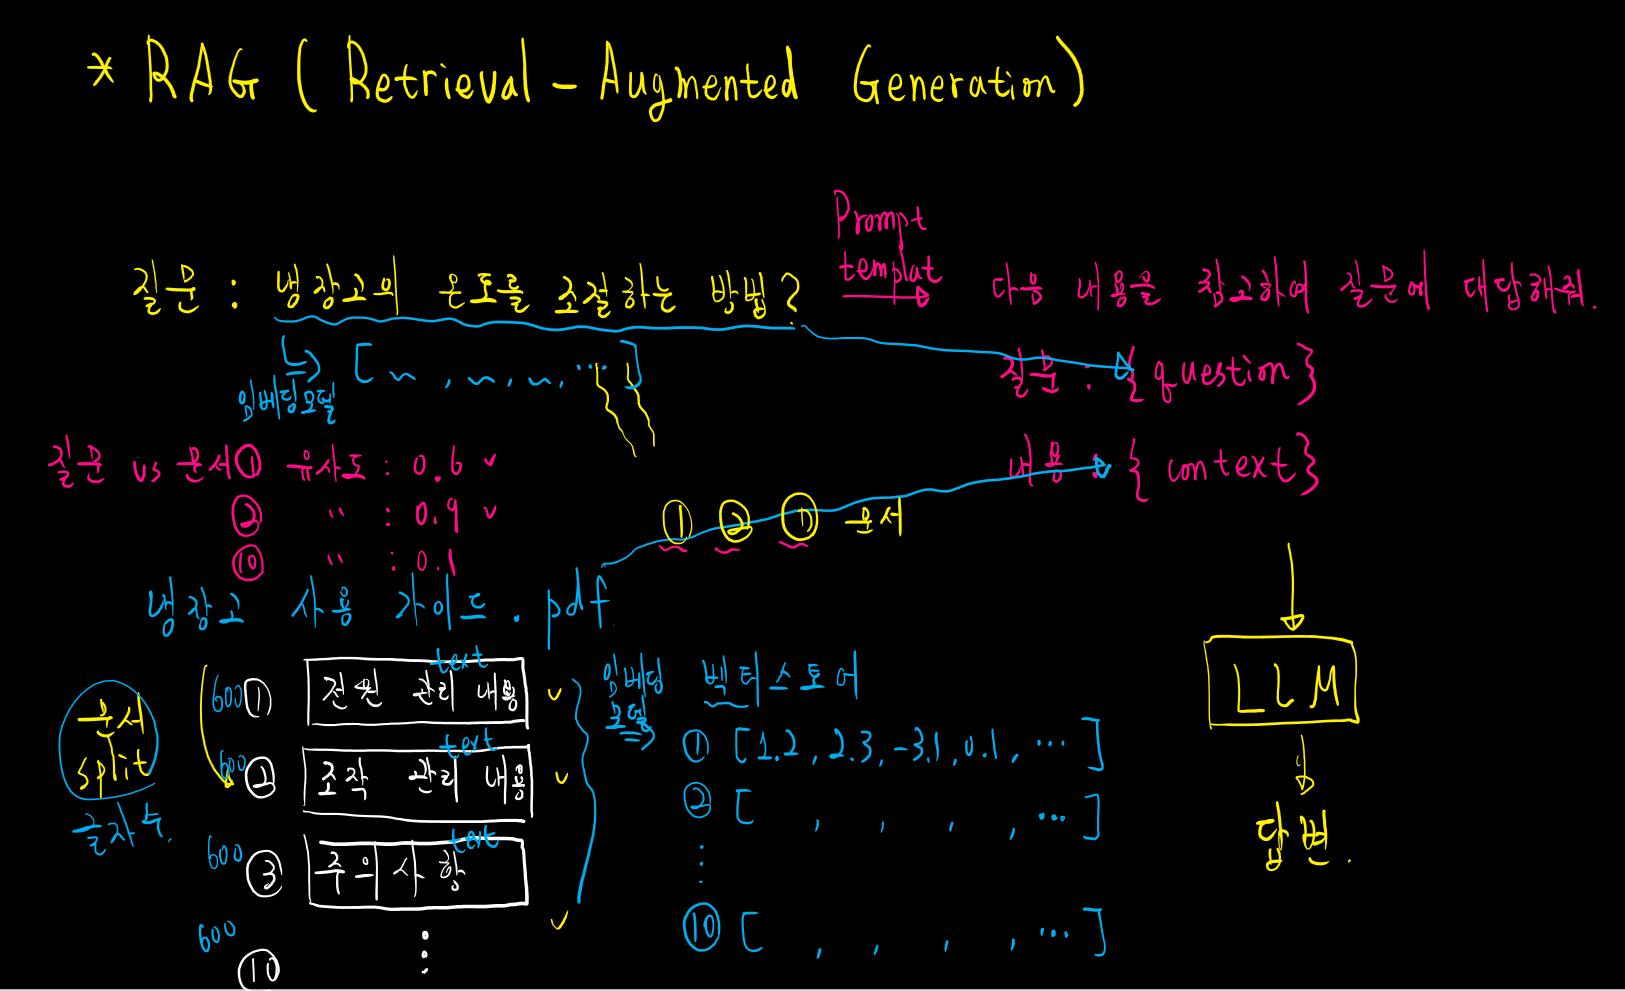 * RAG ( Retrieval - Augmented Generation )
Prompt
templat
질문 : 냉장고의 온도를 조절하는 방법?
다음 내용을 참고하여 질문에 대답해줘.
[ , , , ... ]
임베딩모델
질문 : { question }
내용 : { context }
질문 vs 문서① 유사도 : 0.6 ✓
② " : 0.9 ✓
⑩ " : 0.1
① ② ⑪ 문서
냉장고 사용 가이드 . pdf
문서
split
글자 수.
600 ① 전원 관리 내용 text ✓
600 ② 조작 관리 내용 text ✓
600 ③ 주의사항 text
✓
600 ⑩ ⋮
임베딩
모델
벡터스토어
① [1.2, 2.3, -3.1, 0.1, ... ]
② [ , , , , ... ]
⋮
⑩ [ , , , , ... ]
LLM
답변.